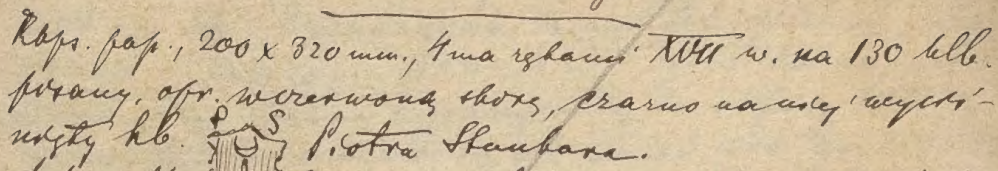 Rkps. pap., 200 x 320 mm., 4ma rękami XVII w. na 130 klb.
pisany, opr. w czerwoną skórę, czarno na niej wyciś-
nięty hb. P S Piotra Stanbara.